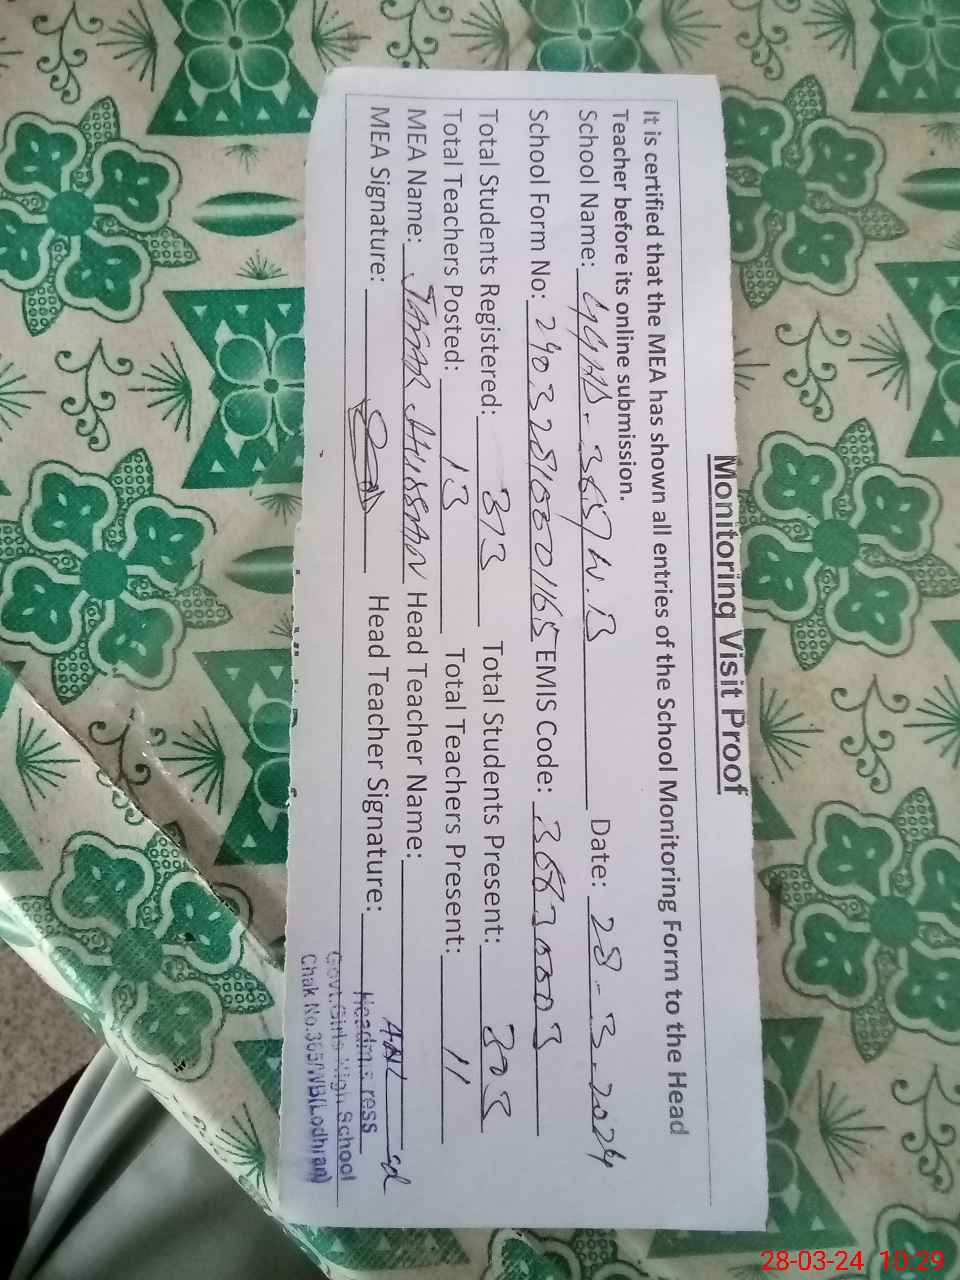 Monitoring Visit Proof
It is certified that the MEA has shown all entries of the School Monitoring Form to the Head
Teacher before its online submission.
School Name: GGHS. 365/W.B Date: 28-3-2024
School Form No: 24032810001165 EMIS Code: 36630003
Total Students Registered: 313 Total Students Present: 203
Total Teachers Posted: 13 Total Teachers Present: 11
MEA Name: HUSSAN Head Teacher Name:
MEA Signature: Head Teacher Signature:
Headmistress
Govt. Girls High School
Chak No.365/WB(Lodhran)
28-03-24 10:29